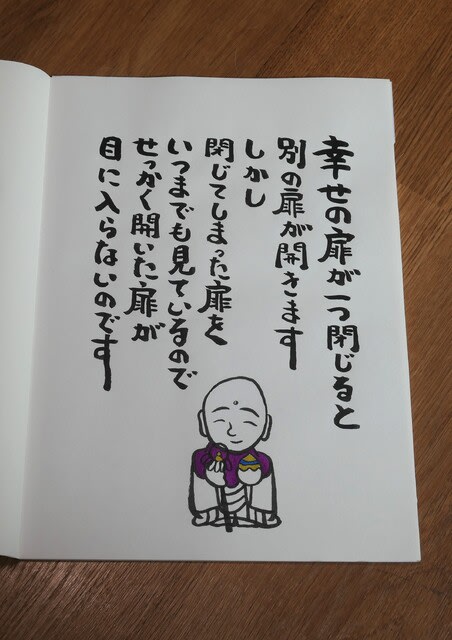 幸せの扉が一つ閉じると
別の扉が開きます
しかし
閉じてしまった扉を
いつまでも見ているので
せっかく開いた扉が
目に入らないのです